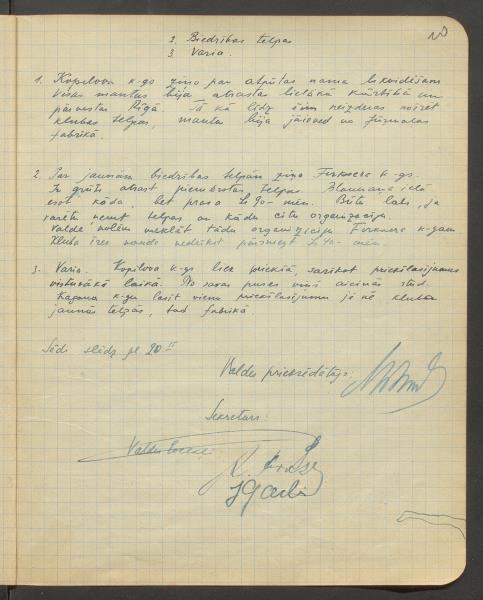 2. Biedrības telpas
3. Varia.
1. Kopilova k-gs ziņo par atpūtas nama likvidēšanu
Visas mantas bija atrastas lielākā kārtībā un
pārvestas Rīgā. Tā kā līdz šim neizdevās noīret
kluba telpas, mantas bija jāieved uz Jūrmalas
fabrikā.
2. Par jaunām biedrības telpām ziņo Firksera k-gs.
Ir grūts atrast piemērotas telpas. Blaumaņa ielā
esot kāda, bet prasa Ls 90- mēn. Būtu labi, ja
varētu ņemt telpas ar kādu citu organizāciju.
Valde nolēm meklēt tādu organizāciju Firksera k-gam
Kluba īres nauda nedrīkst pārsniegt Ls 40- mēn.
3. Varia. Kopilova k-gs liek priekšā, sarīkot priekšlasījumus
vistuvākā laikā. No savas puses viņš aicinās stud.
Kagana k-gu lasīt vienu priekšlasījumu ja nē kluba
jaunās telpās, tad fabrikā.
Sēdi slēdz pl. 20 15
Valdes priekšsēdētājs:
Sekretars: